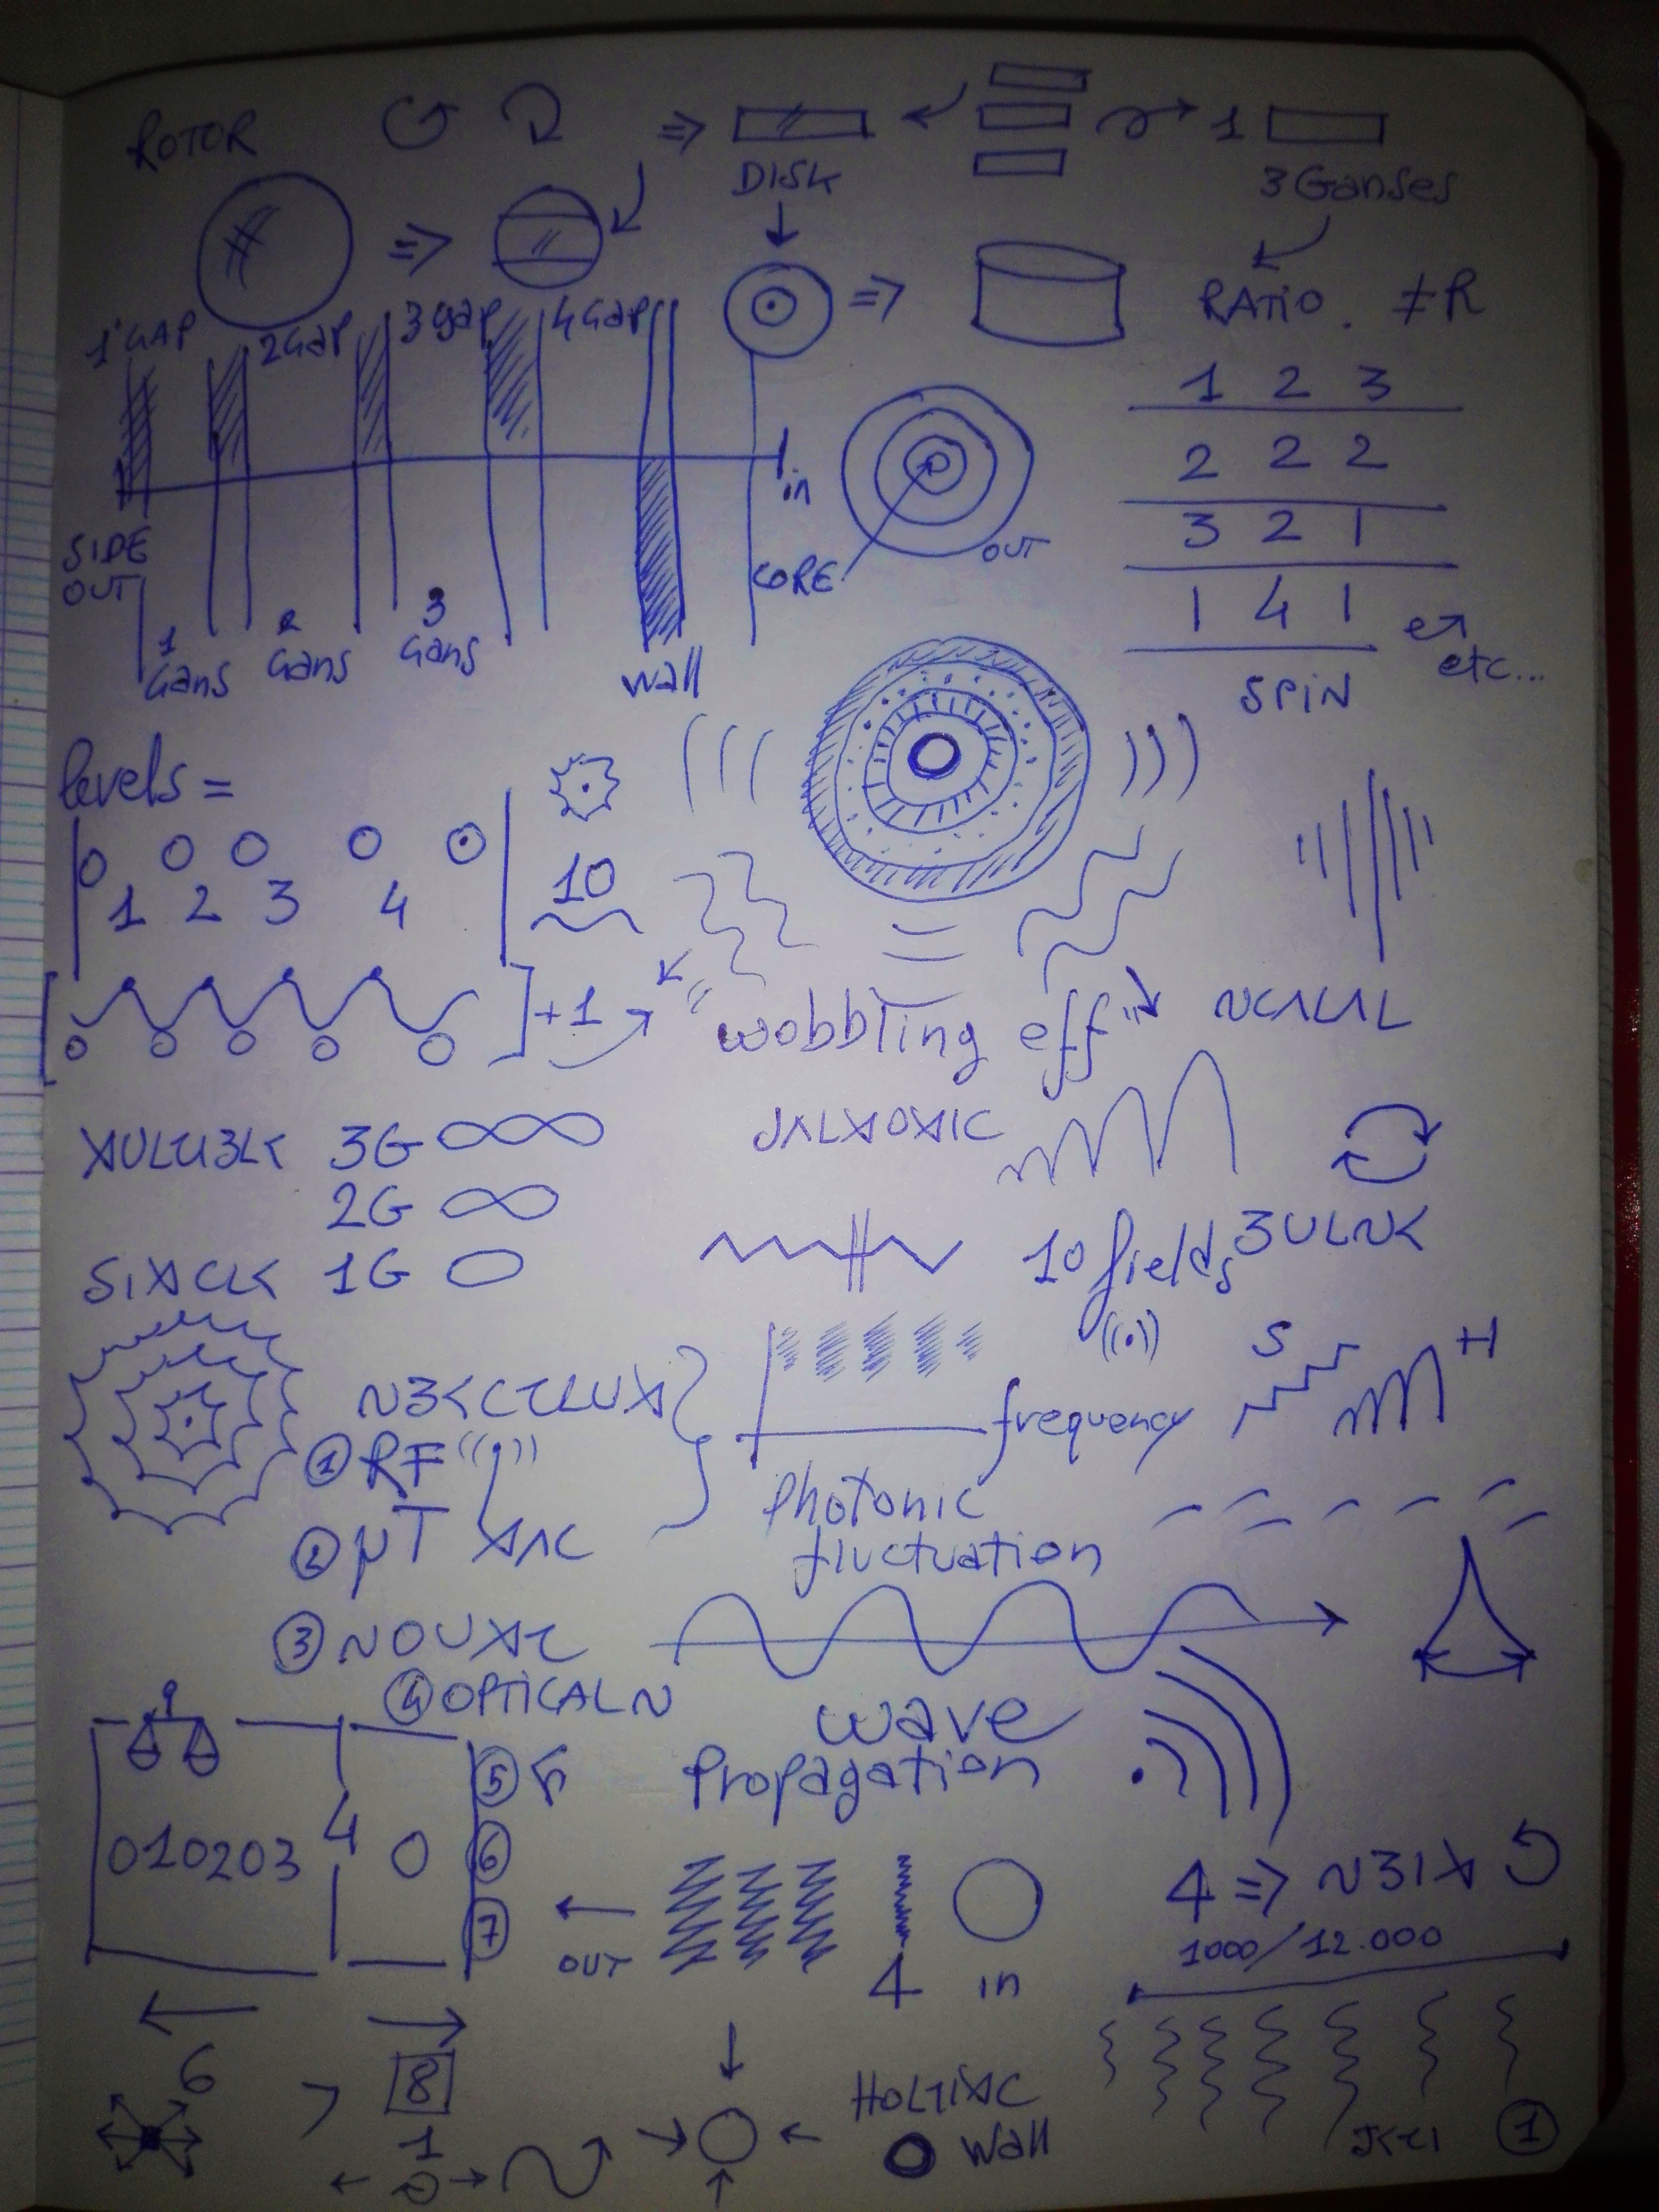 ROTOR
DISK
1
3 Ganses
RATIO. ≠R
1° GAP 2 Gap 3 gap 4 Gap
1 2 3
2 2 2
3 2 1
1 4 1
etc...
SPIN
in
SIDE
OUT
CORE
OUT
1 Gans
2 Gans
3 Gans
Wall
levels =
1 2 3 4
10
+1
"wobbling eff"
3G
2G
1G
10 fields
S H
① RF
frequency
② μT
Photonic
fluctuation
③
④ OPTICAL
wave
Propagation
⑤
010203 4 0
⑥
⑦
OUT
4 in
4 =>
1000/12.000
6
8
1
Wall
①